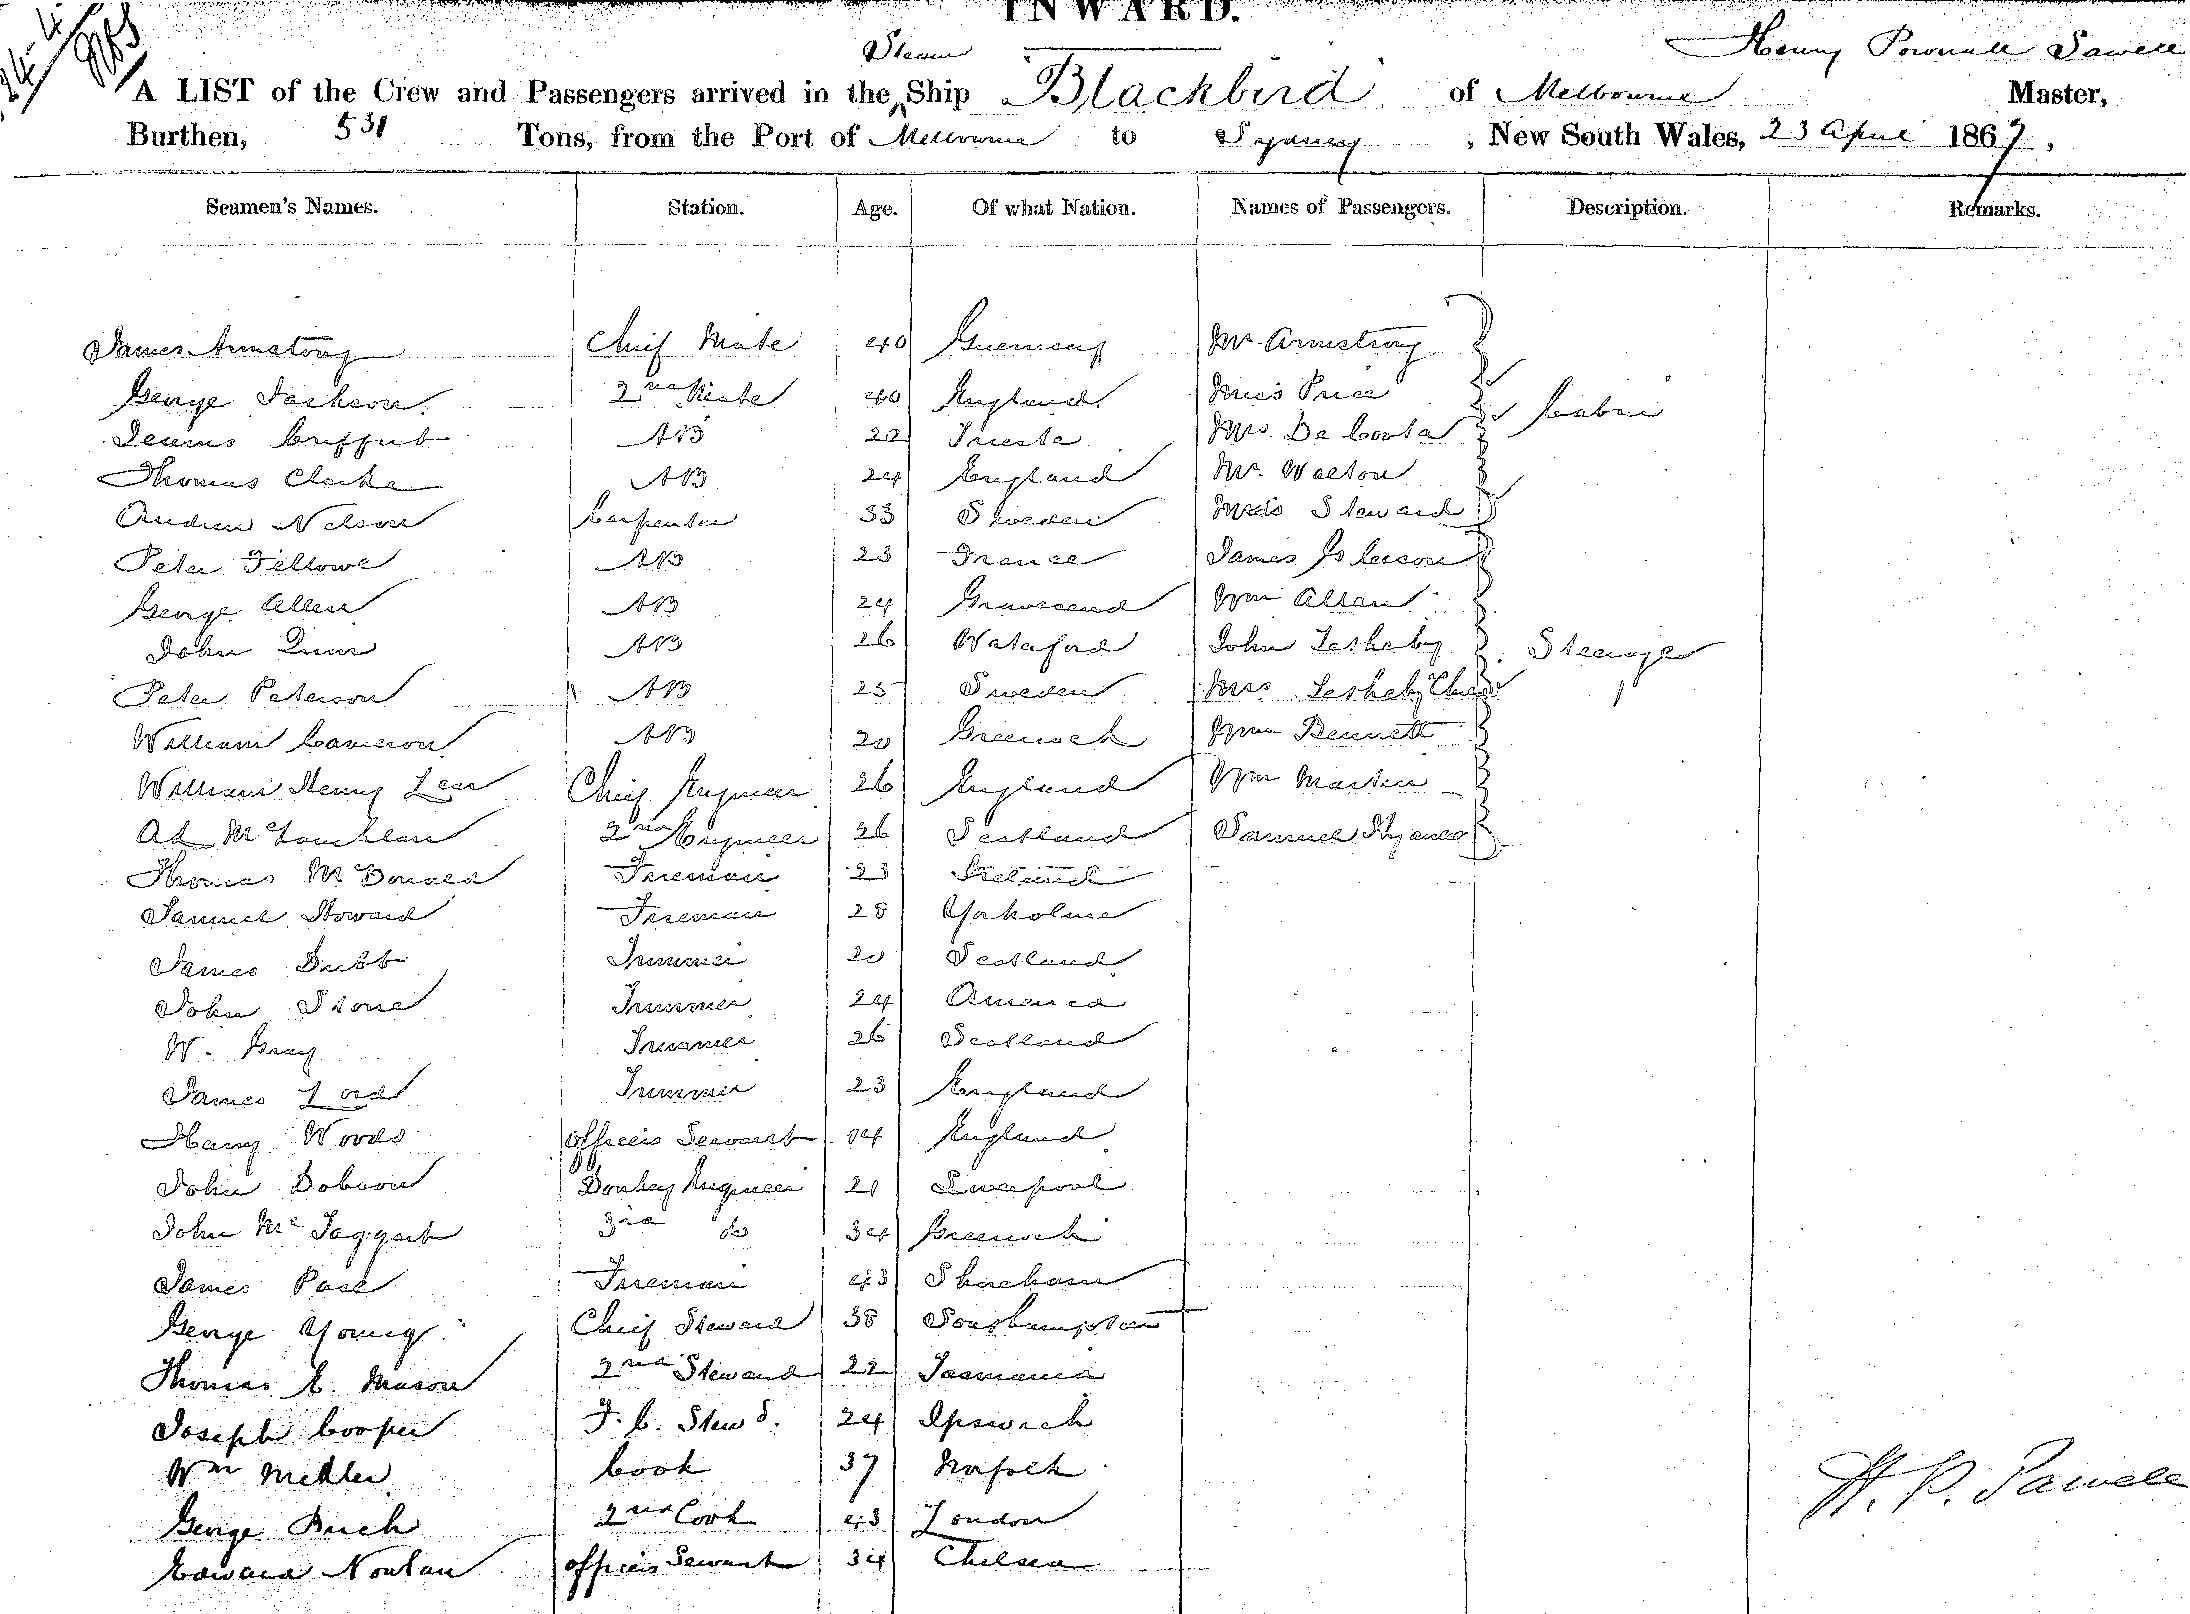 INWARD.
Steam Henry Pownall Sawell
A LIST of the Crew and Passengers arrived in the Ship Blackbird of Melbourne Master,
Burthen, 531 Tons, from the Port of Melbourne to Sydney, New South Wales, 23 April 1867,
Seamen's Names. Station. Age. Of what Nation. Names of Passengers. Description. Remarks.
James Armstrong Chief Mate 40 Guernsey Mr Armstrong
George Jackson 2nd Mate 40 England Miss Price Cabin
AB 22 Trieste Mrs Da Costa
Thomas Clarke AB 24 England Mr Walton
Andrew Nelson Carpenter 33 Sweden Steward
Peter Fellowe AB 23 France James
George Allen AB 24 Gravesend Wm Allan
John Quin AB 26 Wataford John Letheby Steerage
Peter Peterson AB 25 Sweden Mrs Letheby Child
William Cameron AB 20 Greenock Wm Bennett
William Henry Lear Chief Engineer 26 England Wm Martin
Ad McLauchlan 2nd Engineer 26 Scotland Samuel
Thomas McDonald Fireman 23 Ireland
Samuel Howard Fireman 28
James Dubb Trimmer 20 Scotland
John Stone Trimmer 24 America
W. Gray Trimmer 26 Scotland
James Lord Trimmer 23 England
Harry Woods officers Servant 14 England
John Dobson Donkey Engineer 21 Liverpool
John McTaggart 3rd do 34 Greenock
James Pase Fireman 43 Shoreham
George Young Chief Steward 38 Southampton
Thomas E. Mason 2nd Steward 22 Tasmania
Joseph Cooper F. C. Stewd. 24 Ipswich
Wm Medler Cook 37 Norfolk
George Buck 2nd Cook 43 London
Edward Nouhan officers Servant 34 Chelsea
H. P. Sawell